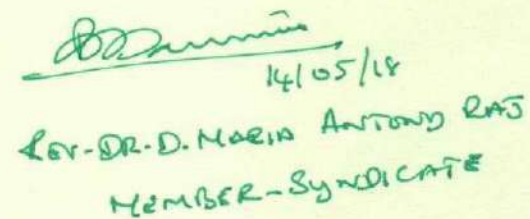 14/05/18
REV-DR-D. MARIA ANTONY RAJ
MEMBER-SYNDICATE